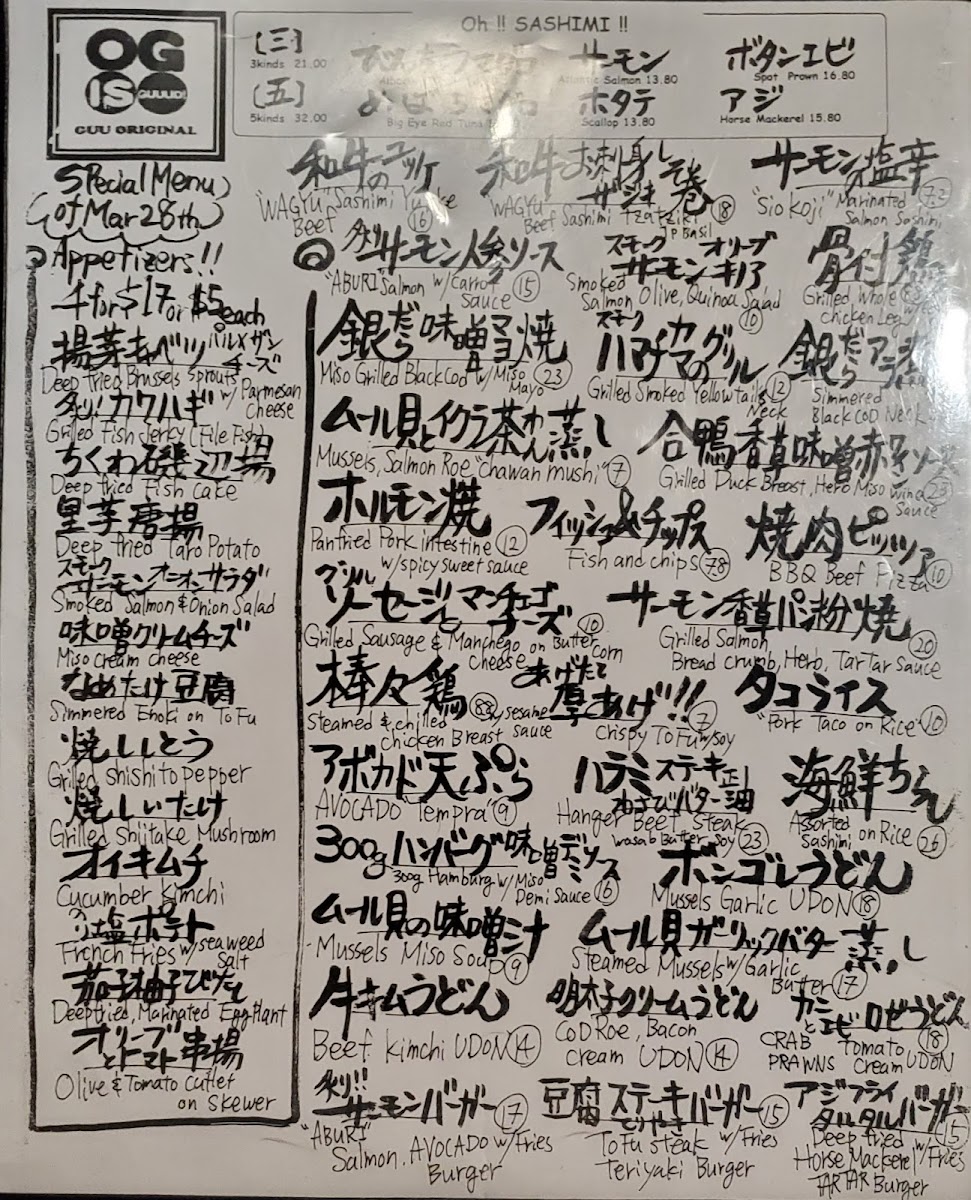 OG
IS
GUUUD!
GUU ORIGINAL
Oh !! SASHIMI !!
[三]
3kinds 21.00
[五]
5kinds 32.00
Big Eye Red Tuna
サーモン
Salmon 13.80
ホタテ
Scallop 13.80
ボタンエビ
Spot Prawn 16.80
アジ
Horse Mackerel 15.80
Special Menu
(of Mar 28th)
Appetizers!!
4 for $17 or $5 each
揚芽キャベツ パルメザンチーズ
Deep fried Brussels Sprouts w/ Parmesan Cheese
炙りカワハギ
Grilled Fish Jerky (File Fish)
ちくわ磯辺揚
Deep fried Fish Cake
里芋唐揚
Deep fried Taro Potato
スモークサーモンオニオンサラダ
Smoked Salmon & Onion Salad
味噌クリームチーズ
Miso cream cheese
なめたけ豆腐
Simmered Enoki on ToFu
焼ししとう
Grilled Shishito pepper
焼しいたけ
Grilled Shiitake Mushroom
オイキムチ
Cucumber Kimchi
のり塩ポテト
French Fries w/ seaweed Salt
茄子柚子びたし
Deepfried, Marinated EggPlant
オリーブとトマト串揚
Olive & Tomato Cutlet
on Skewer
和牛のユッケ
"WAGYU" Sashimi Yukke
Beef 16
和牛お刺身しそ巻
ザジキ
WAGYU Beef Sashimi Tzatziki 18
JP Basil
サーモン塩辛
"Sio Koji" Marinated
Salmon Sashimi
炙りサーモン人参ソース
"ABURI" Salmon w/ Carrot
Sauce 15
スモークサーモンオリーブキノア
Smoked
Salmon Olive, Quinoa Salad
10
骨付鶏
Grilled, Whole
Chicken Leg
銀だら味噌マヨ焼
Miso Grilled Black Cod w/ Miso
Mayo 23
スモークハマチカマのグリル
Grilled Smoked Yellowtail 12
Neck
銀だらアラ
Simmered
Black COD Neck
ムール貝とイクラ茶わん蒸し
Mussels, Salmon Roe "Chawan mushi" 7
合鴨香草味噌赤ワインソース
Grilled Duck Breast, Hero Miso Wine 23
Sauce
ホルモン焼
Panfried Pork intestine 12
w/ spicy sweet sauce
フィッシュ&チップス
Fish and chips 7.8
焼肉ピッツァ
BBQ Beef Pizza 10
グリルソーセージとマンチェゴチーズ
Grilled Sausage & Manchego on Butter 10
cheese Corn
サーモン香草パン粉焼
Grilled Salmon, 20
Bread crumb, Herb, TarTar Sauce
棒々鶏
Steamed & chilled 8.8 w/ sesame
chicken Breast sauce
あげたて厚あげ!!
7
Crispy ToFu w/ soy
タコライス
"Pork Taco on Rice" 10
アボカド天ぷら
AVOCADO "Tempra" 9
ハラミステーキ わさびバター正油
Hanger Beef Steak
Wasabi Butter Soy 23
海鮮ちらし
Assorted
Sashimi on Rice 26
300gハンバーグ味噌デミソース
300g Hamburg w/ Miso
Demi Sauce 16
ボンゴレうどん
Mussels Garlic UDON 18
ムール貝の味噌汁
Mussels Miso Soup 9
ムール貝ガーリックバター蒸し
Steamed Mussels w/ Garlic
Butter 17
牛キムうどん
Beef Kimchi UDON 14
明太子クリームうどん
Cod Roe, Bacon
Cream UDON 14
カニとエビロゼうどん
CRAB Tomato 18
PRAWNS Cream UDON
炙り!!
サーモンバーガー 17
"ABURI" w/ Fries
Salmon. AVOCADO
Burger
豆腐ステーキてりやきバーガー 15
ToFu Steak w/ Fries
Teriyaki Burger
アジフライタルタルバーガー
15
Deep fried
Horse Mackerel w/ Fries
TARTAR Burger